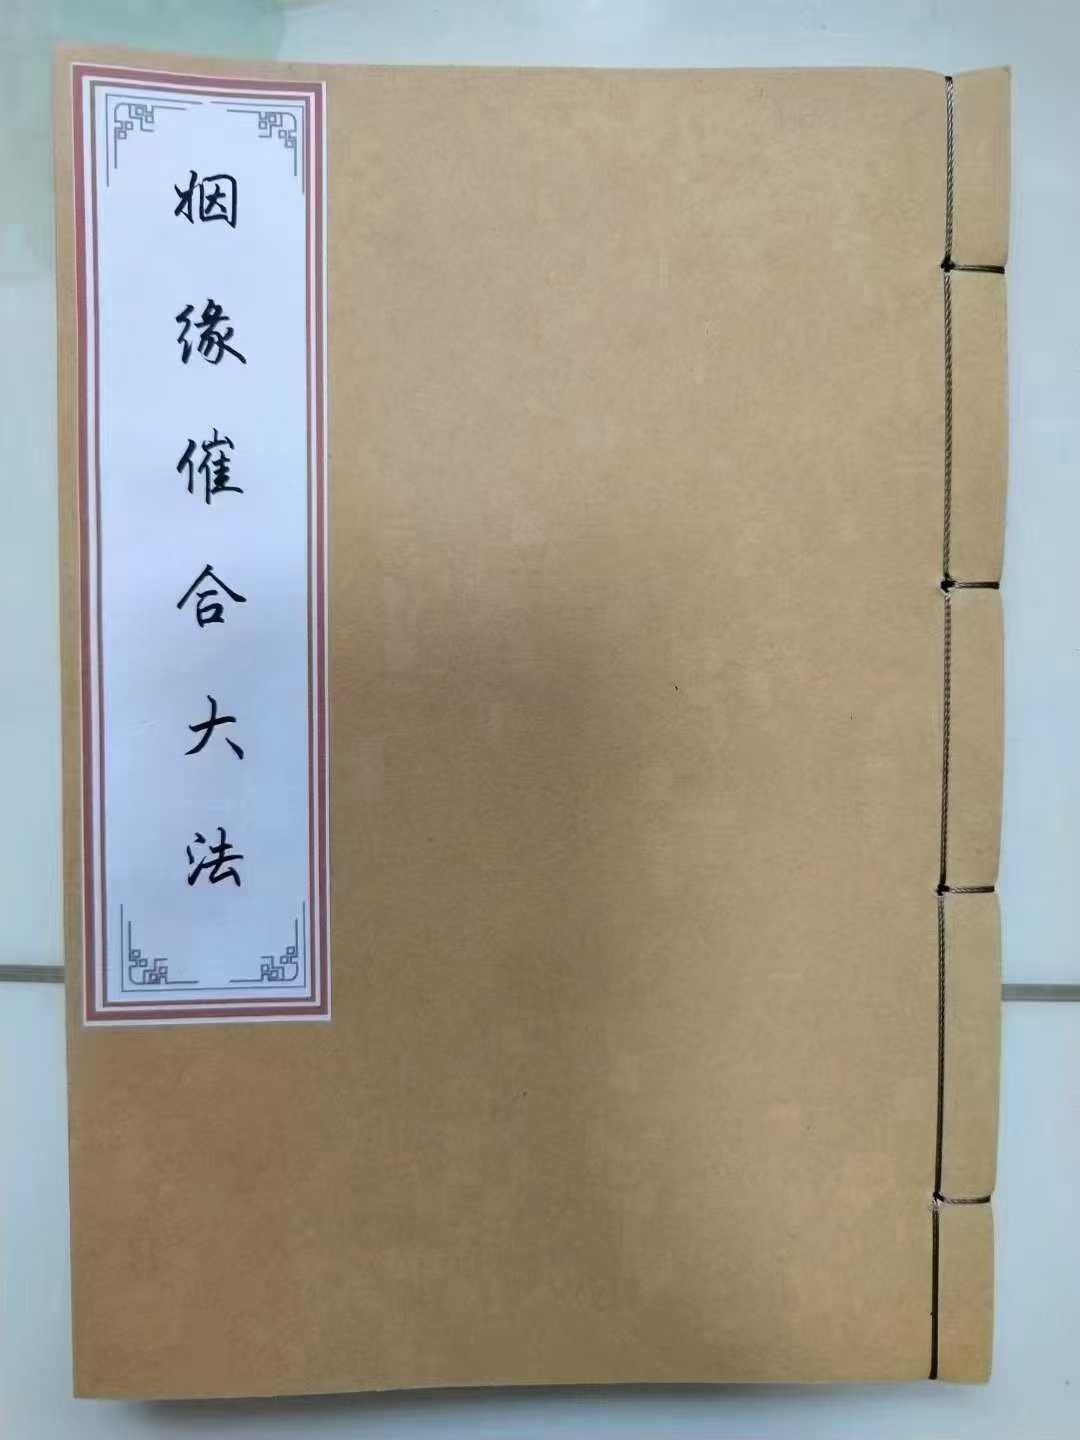 姻缘催合大法